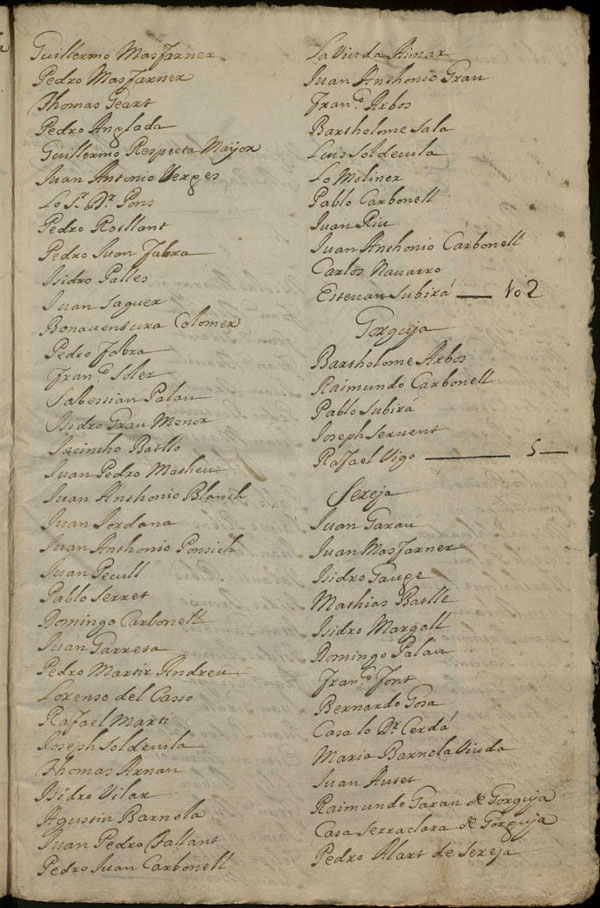 Guillermo Mas Jarner
Pedro Mas Jarner
Thomas Geart
Pedro Anglada
Guillermo Respecta Mayor
Juan Antonio Verges
Lo Sr. Dr. Pons
Pedro Roillant
Pedro Juan Fabra
Isidro Palles
Juan Saguer
Bonaventura Colomer
Pedro Fabra
Franco. Soler
Sabestian Palau
Isidro Grau Menor
Jacintho Batllo
Juan Pedro Matheu
Juan Anthonio Blanch
Juan Jordana
Juan Anthonio Ponsich
Juan Pecull
Pablo Serret
Domingo Carbonell
Juan Garresa
Pedro Martir Andreu
Lorenso del Casso
Rafael Marti
Joseph Soldevila
Thomas Arnau
Isidro Vilar
Agustin Barnola
Juan Pedro Ballant
Pedro Juan Carbonell
La Viuda Aimar
Juan Anthonio Grau
Franco. Arbos
Bartholome Sala
Luis Soldevila
Lo Moliner
Pablo Carbonell
Juan Riu
Juan Anthonio Carbonell
Carlos Navarro
Estevan Subirá — 102
Gorguja
Bartholome Arbos
Raimundo Carbonell
Pablo Subirá
Joseph Servent
Rafael Vigo — 5 —
Sereja
Juan Garau
Juan Mas Jarner
Isidro Gauge
Mathias Batlle
Isidro Margall
Domingo Palau
Franco. Font
Bernardo Gosa
Casa lo Dr. Cerdá
Maria Barnola Viuda
Juan Auset
Raimundo Garau de Gorguja
Casa Serraclara de Gorguja
Pedro Alart de Sereja